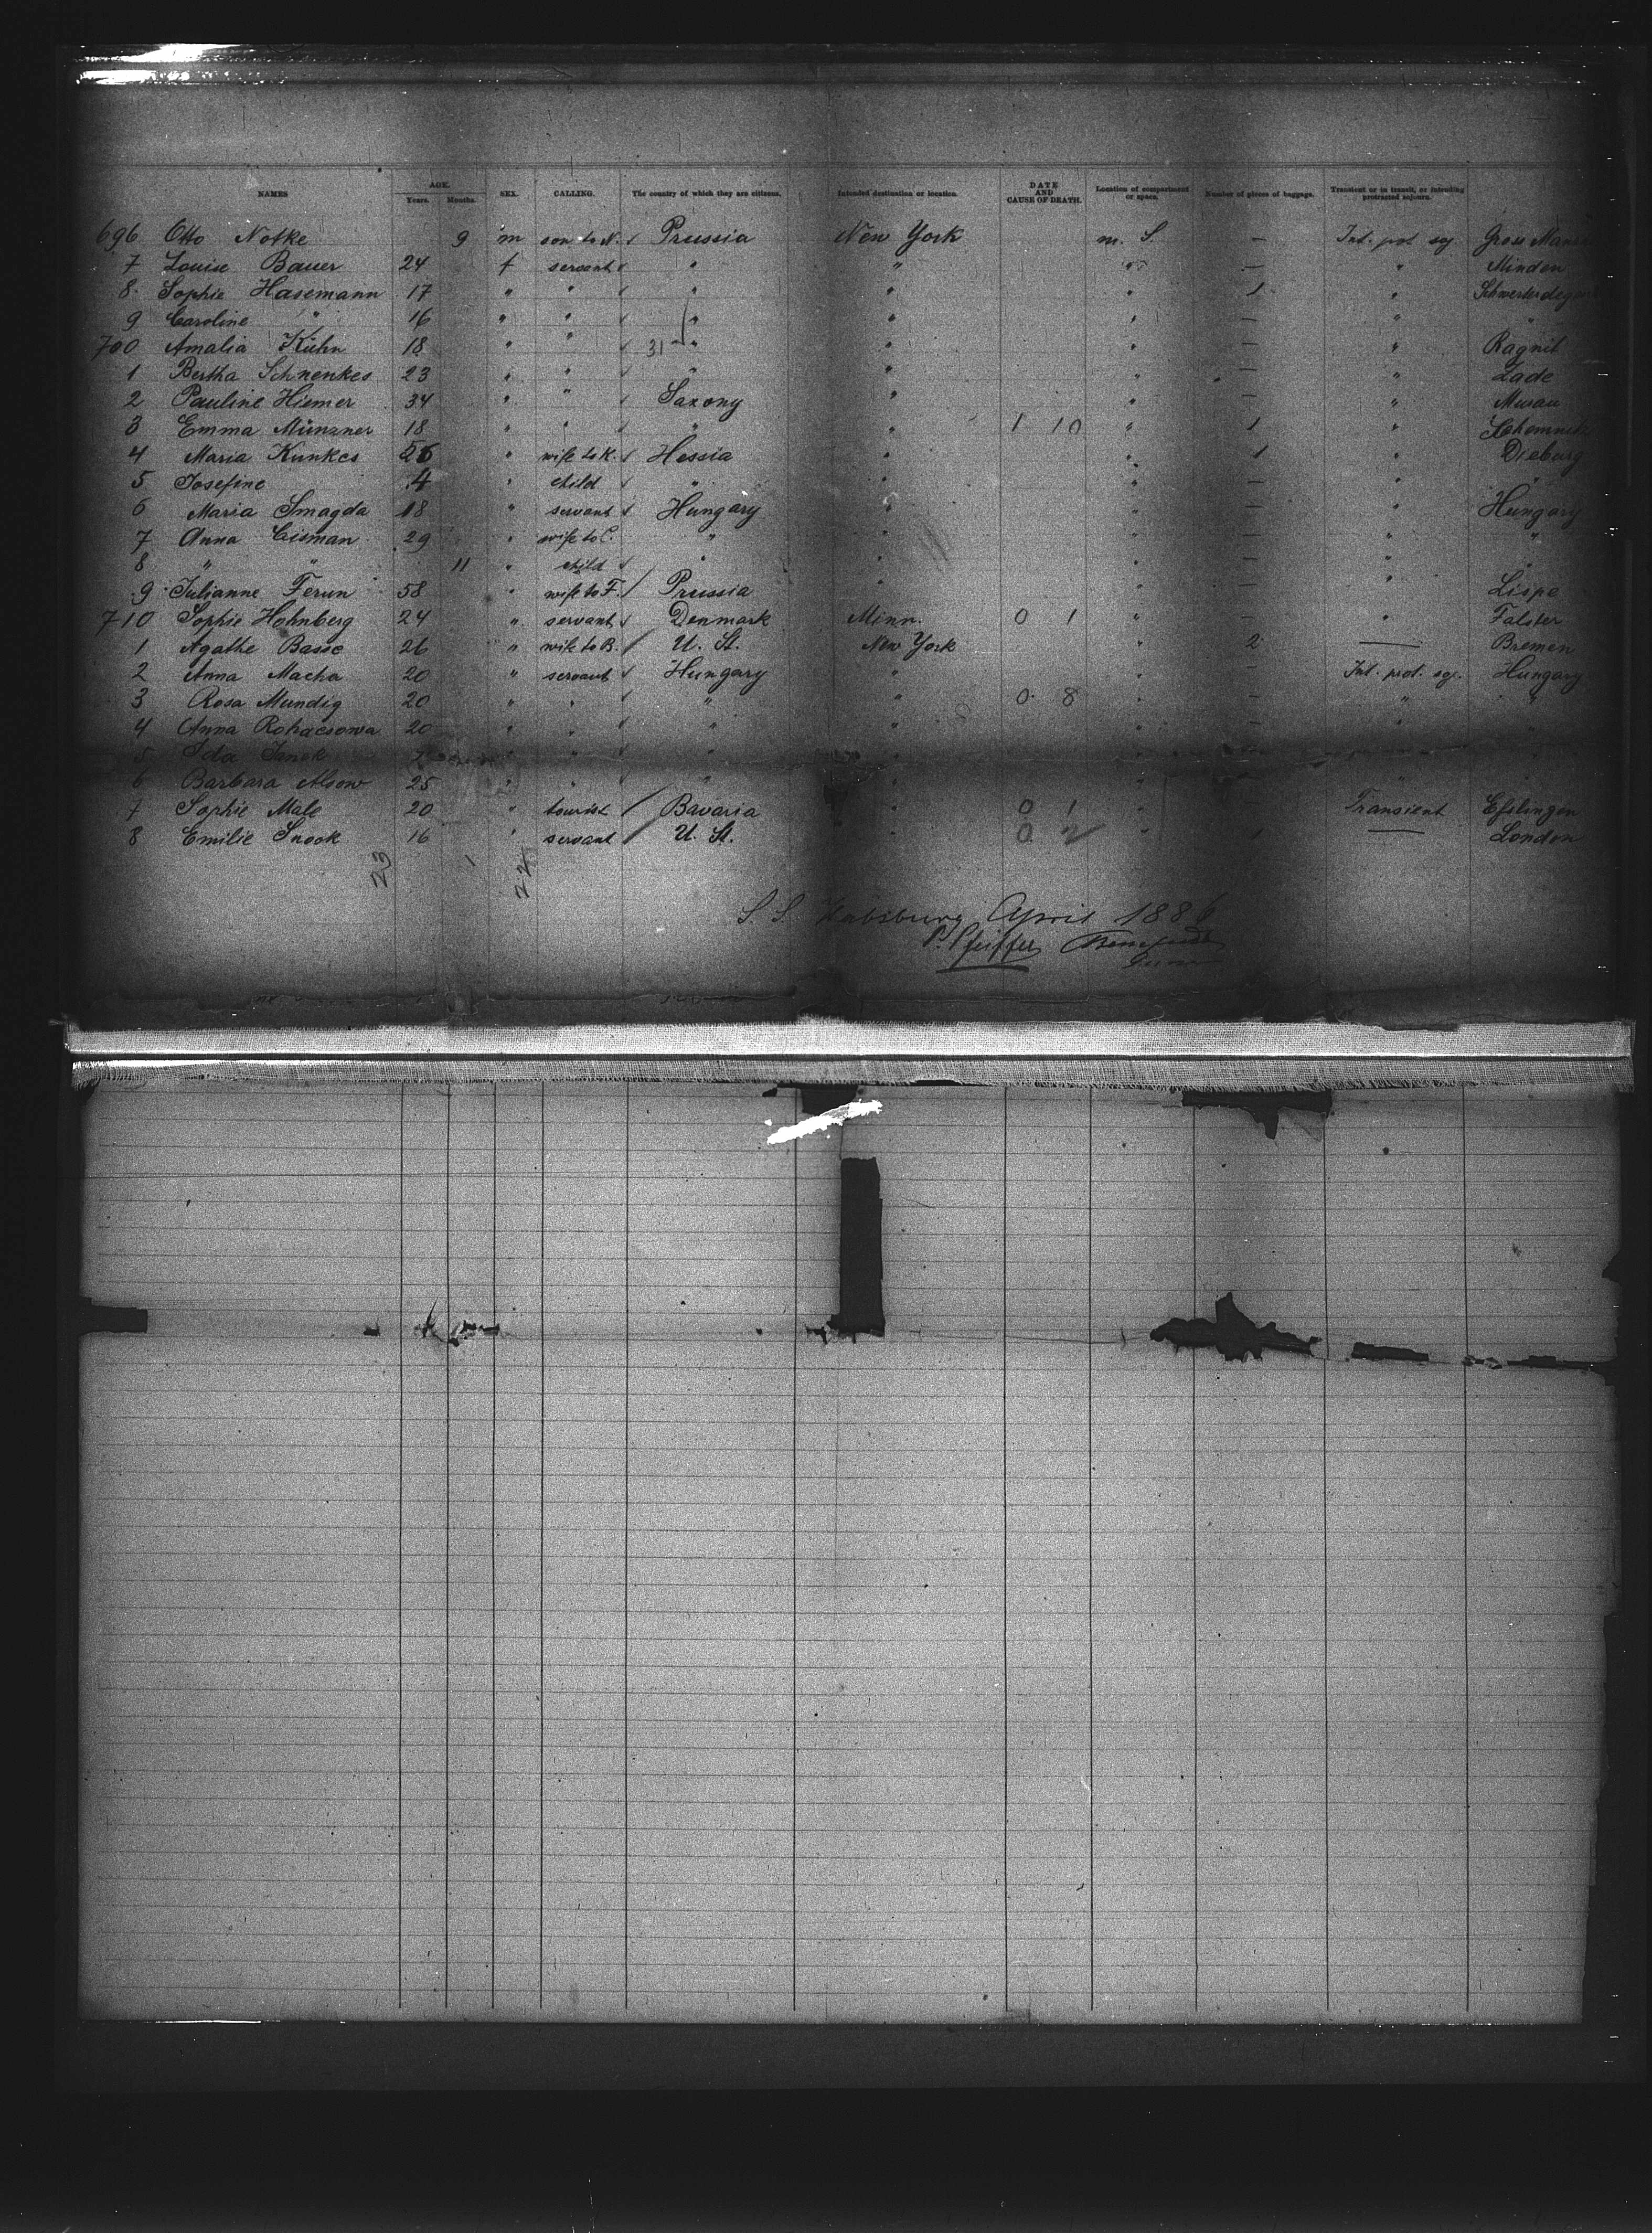 NAMES AGE. Years. Months. SEX. CALLING. The country of which they are citizens. Intended destination or location. DATE AND CAUSE OF DEATH. Location of compartment or space. Number of pieces of baggage. Transient or in transit, or intending protracted sojourn.
696 Otto Notke 9 m son to N. Prussia New York m. S. — Int. prot. soj. Gross
7 Louise Bauer 24 f servant " " " — " Minden
8 Sophie Hasemann 17 " " " " " 1 "
9 Caroline " 16 " " " " " — " "
700 Amalia Kühn 18 " " 31 " " " — " Ragnit
1 Bertha Schnenkes 23 " " " " " — " Lade
2 Pauline Hiemer 34 " " Saxony " " — "
3 Emma Münzner 18 " " " " 1 10 " 1 "
4 Maria Kunkes wife to K. Hessia " " 1 " Dieburg
5 Josefine 4 " child " " " — " "
6 Maria Smagda 18 " servant Hungary " " — " Hungary
7 Anna Cisman 29 " wife to C. " " " — " "
8 " " 11 " child " " " — " "
9 Julianne Ferun 58 " wife to F. Prussia " " — " Lispe
710 Sophie Hohnberg 24 " servant Denmark Minn. 0 1 " — " Falster
1 Agathe Basse 26 " wife to B. U. St. New York " 2 — Bremen
2 Anna Macha 20 " servant Hungary " " — Int. prot. soj. Hungary
3 Rosa Mundig 20 " " " " 0 8 " — " "
4 Anna Rohacsowa 20 " " " " " — " "
5 Ida Janok " " "
6 Barbara Alsow 25 " " " " "
7 Sophie Male 20 " tourist Bavaria " 0 1 " Transient Esslingen
8 Emilie Snook 16 " servant U. St. " 0 " — London
23 1 22
S. S. Habsburg April 1886
P. Pfeiffer